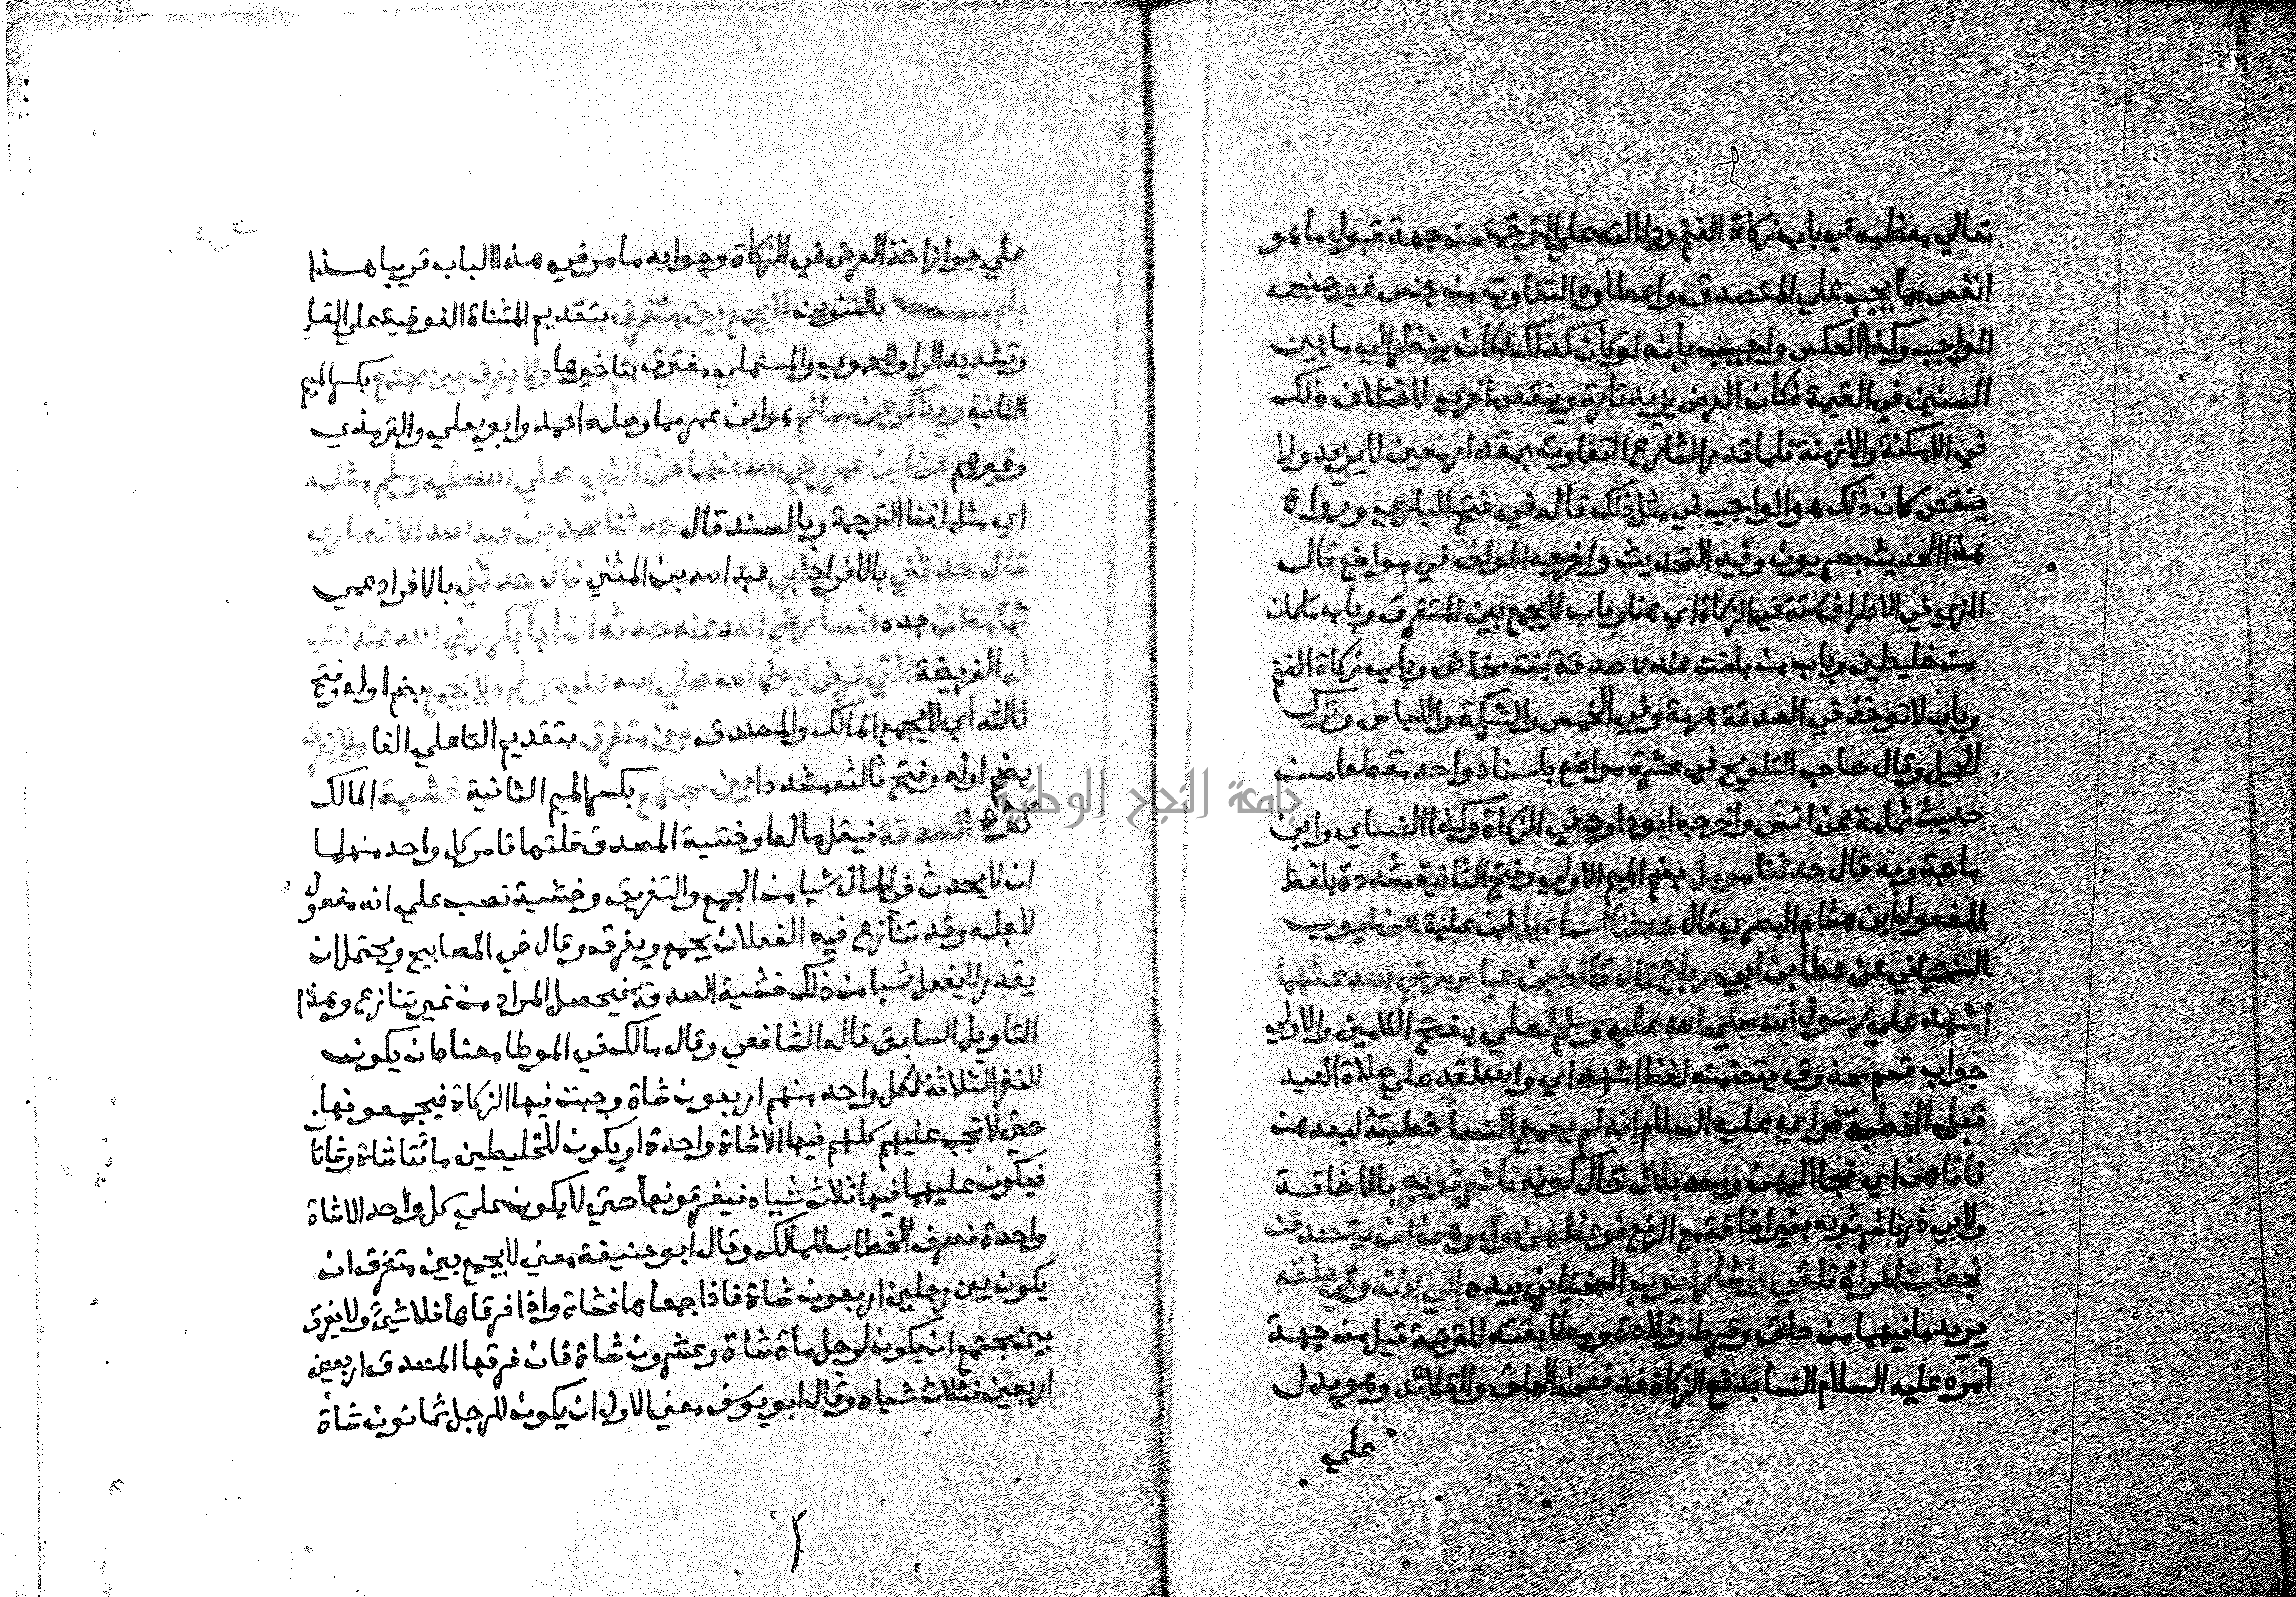 تعالي معظمه في باب زكاة الغنم ودلالته علي الترجمة من جهة قبول ما هو
انفس مما يجب علي المتصدق واعطاوه التفاوت من جنس غير جنس
الواجب وكذا العكس واجيب بانه لو كان كذلك لكان ينظر الي ما بين
السنين في القيمة فكان العرض يزيد تارة وينقص اخري لاختلاف ذلك
في الامكنة والازمنة فلما قدر الشارع التفاوت بمقدار معين لا يزيد ولا
ينقص كان ذلك هو الواجب في مثل ذلك قاله في فتح الباري ورواة
هذا الحديث بصريون وفيه التحديث واخرجه المولف في مواضع قال
المزي في الاطراف ستة في الزكاة اي هنا وباب لا يجمع بين المتفرق وباب ما كان
من خليطين وباب من بلغت عنده صدقة بنت مخاض وباب زكاة الغنم
وباب لا توخذ في الصدقة هرمة وفي الخمس والشركة واللباس وترك
الحيل وقال صاحب التلويح في عشرة مواضع باسناد واحد مقطعا من
حديث ثمامة عن انس واخرجه ابو داود في الزكاة وكذا النساي وابن
ماجة وبه قال حدثنا مومل بضم الميم الاولي وفتح الثانية مشددة بلفظ
المفعول ابن هشام البصري قال حدثنا اسماعيل ابن علية عن ايوب
السختياني عن عطا بن ابي رباح قال قال ابن عباس رضي الله عنهما
اشهد علي رسول الله صلي الله عليه وسلم لصلي بفتح اللامين والاولي
جواب قسم محذوف يتضمنه لفظ اشهد اي والله لقد صلي صلاة العيد
قبل الخطبة فراي عليه السلام انه لم يسمع النسا خطبته لبعدهن
فاتاهن اي فجا اليهن ومعه بلال حال كونه ناشر ثوبه بالاضافة
ولابي ذر ناشر ثوبه بغير اضافة مع الرفع فوعظهن وامرهن ان يتصدقن
فجعلت المراة تلقي واشار ايوب السختياني بيده الي اذنه والي حلقه
يريد ما فيهما من حلق وقرط وقلادة ومطابقته للترجمة قيل من جهة
امره عليه السلام النسا بدفع الزكاة فدفعن الحلق والقلائد وهو يدل
علي
علي جواز اخذ العرض في الزكاة وجوابه ما مر في هذا الباب قريبا هذا
باب بالتنوين لا يجمع بين متفرق بتقديم المثناة الفوقية علي الفا
وتشديد الرا وللحموي والمستملي مفترق بتاخيرها ولا يفرق بين مجتمع بكسر الميم
الثانية ويذكر عن سالم هو ابن عمر مما وصله احمد وابو يعلي والترمذي
وغيرهم عن ابن عمر رضي الله عنهما عن النبي صلي الله عليه وسلم مثله
اي مثل لفظ الترجمة وبالسند قال حدثنا محمد بن عبد الله الانصاري
قال حدثني بالافراد ابي عبد الله بن المثني قال حدثني بالافراد عمي
ثمامة ان جده انسا رضي الله عنه حدثه ان ابا بكر رضي الله عنه كتب
له الفريضة التي فرض رسول الله صلي الله عليه وسلم ولا يجمع بضم اوله وفتح
ثالثه اي لا يجمع المالك والمصدق بين متفرق بتقديم التا علي الفا ولا يفرق
بضم اوله وفتح ثالثه مشددا بين مجتمع بكسر الميم الثانية خشية المالك
كثرة الصدقة فيقل ماله او خشية المصدق قلتها فامر كل واحد منهما
ان لا يحدث في المال شيا من الجمع والتفريق وخشية نصب علي انه مفعول
لاجله وقد تنازع فيه الفعلان يجمع ويفرق وقال في المصابيح ويحتمل ان
يقدر لا يفعل شيا من ذلك خشية الصدقة فيحصل المراد من غير تنازع وهذا
التاويل السابق قاله الشافعي وقال مالك في الموطا معناه ان يكون
النفر الثلاثة لكل واحد منهم اربعون شاة وجبت فيها الزكاة فيجمعونها
حتي لا تجب عليهم كلهم فيها الا شاة واحدة او يكون للخليطين مائتا شاة وشاتا
فيكون عليهما فيها ثلاث شياه فيفرقونها حتي لا يكون علي كل واحد الا شاة
واحدة فصرف الخطاب للمالك وقال ابو حنيفة معني لا يجمع بين متفرق ان
يكون بين رجلين اربعون شاة فاذا جمعاها فشاة واذا فرقاها فلا شي ولا يفرق
بين مجتمع ان يكون لرجل ماة شاة وعشرون شاة فان فرقها المصدق اربعين
اربعين فثلاث شياه وقال ابو يوسف معني الاول ان يكون للرجل ثمانون شاة
جامعة النجاح الوط